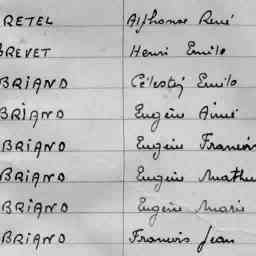 RETEL Alphonse René
BREVET Henri Emile
BRIAND Célestin Emile
BRIAND Eugène Aimé
BRIAND Eugène Francis
BRIAND Eugène Mathu
BRIAND Eugène Marie
BRIAND Francis Jean